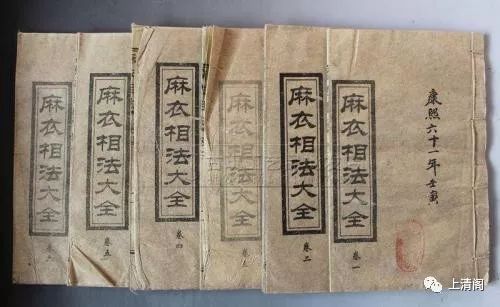 康熙六十一年壬寅
麻衣相法大全
卷一
麻衣相法大全
卷二
麻衣相法大全
麻衣相法大全
卷四
麻衣相法大全
卷五
麻衣相法大全
卷六
上清阁